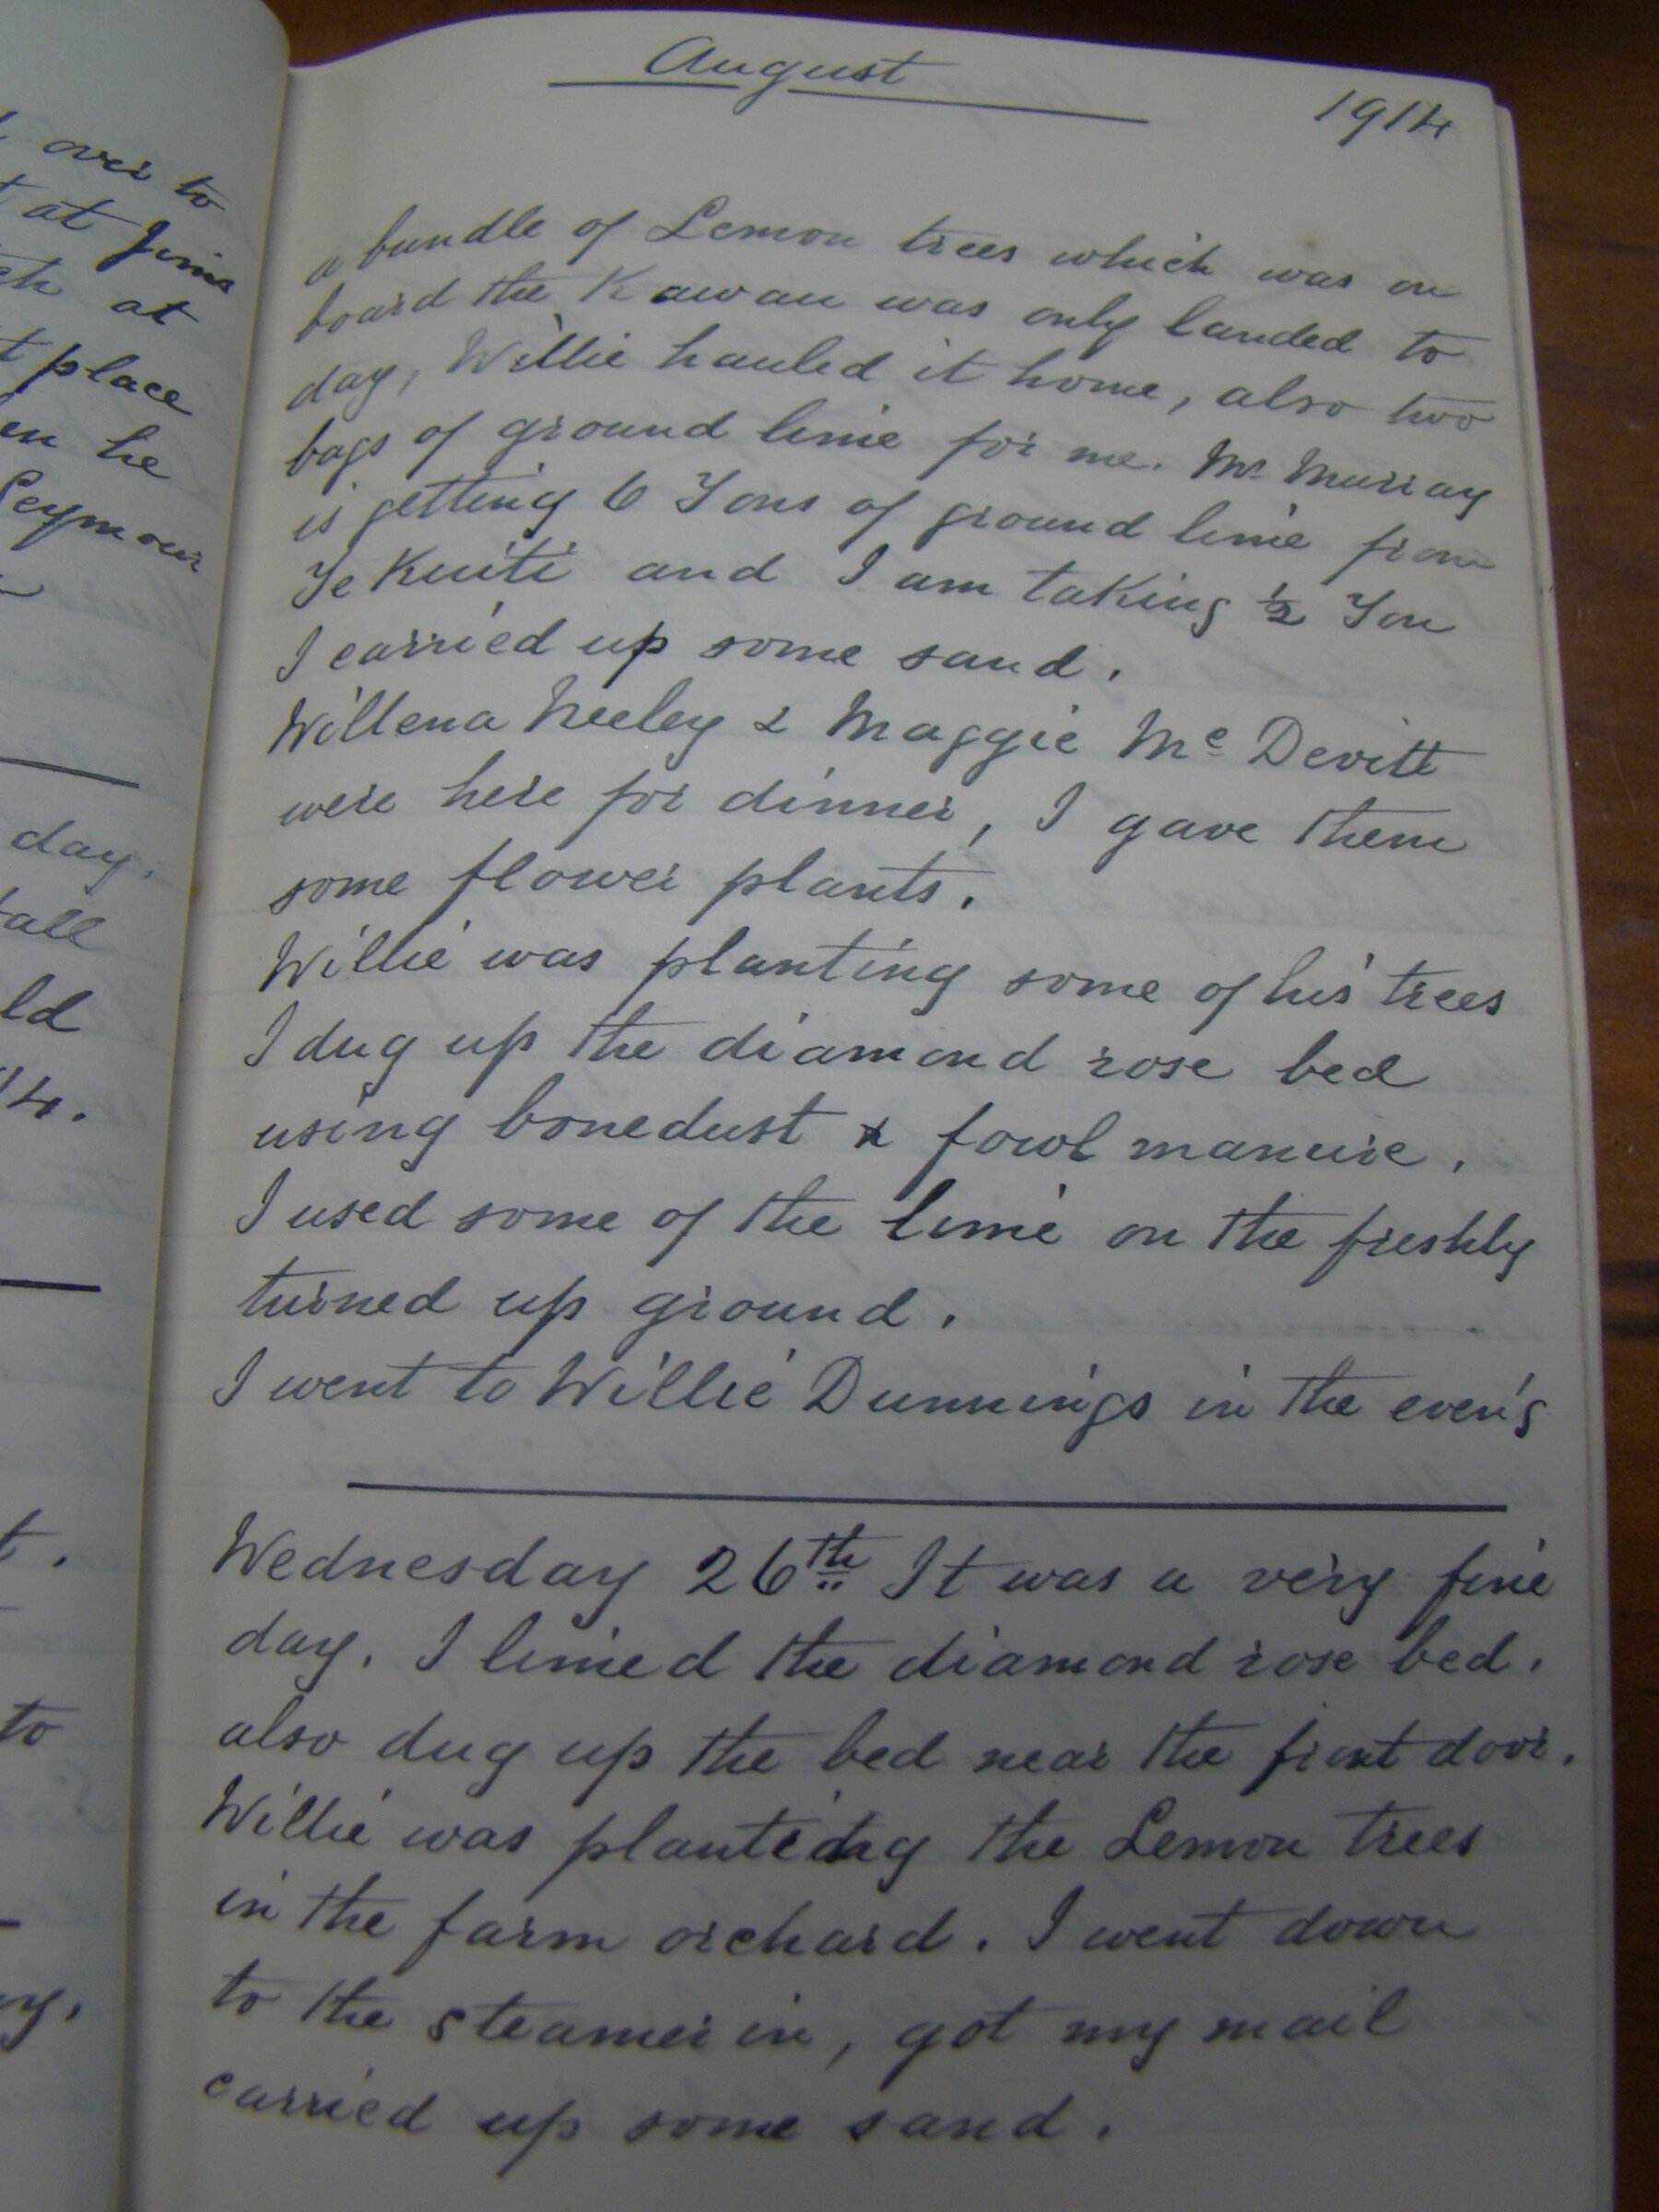 over to
at Jims
at
place
he
Seymour
day.
all
ld
14.
to
August
1914
a bundle of Lemon trees which was on
board the Kawau was only landed to
day, Willie hauled it home, also two
bags of ground lime for me. Mr Murray
is getting 6 Tons of ground lime from
Te Kuiti and I am taking ½ Ton
I carried up some sand.
Willena Neeley & Maggie Mc Devitt
were here for dinner, I gave them
some flower plants.
Willie was planting some of his trees
I dug up the diamond rose bed
using bonedust & fowl manure.
I used some of the lime on the freshly
turned up ground.
I went to Willie Dunnings in the even'g
Wednesday 26th It was a very fine
day. I limed the diamond rose bed.
also dug up the bed near the front door.
Willie was planting the Lemon trees
in the farm orchard. I went down
to the steamer in, got my mail
carried up some sand.